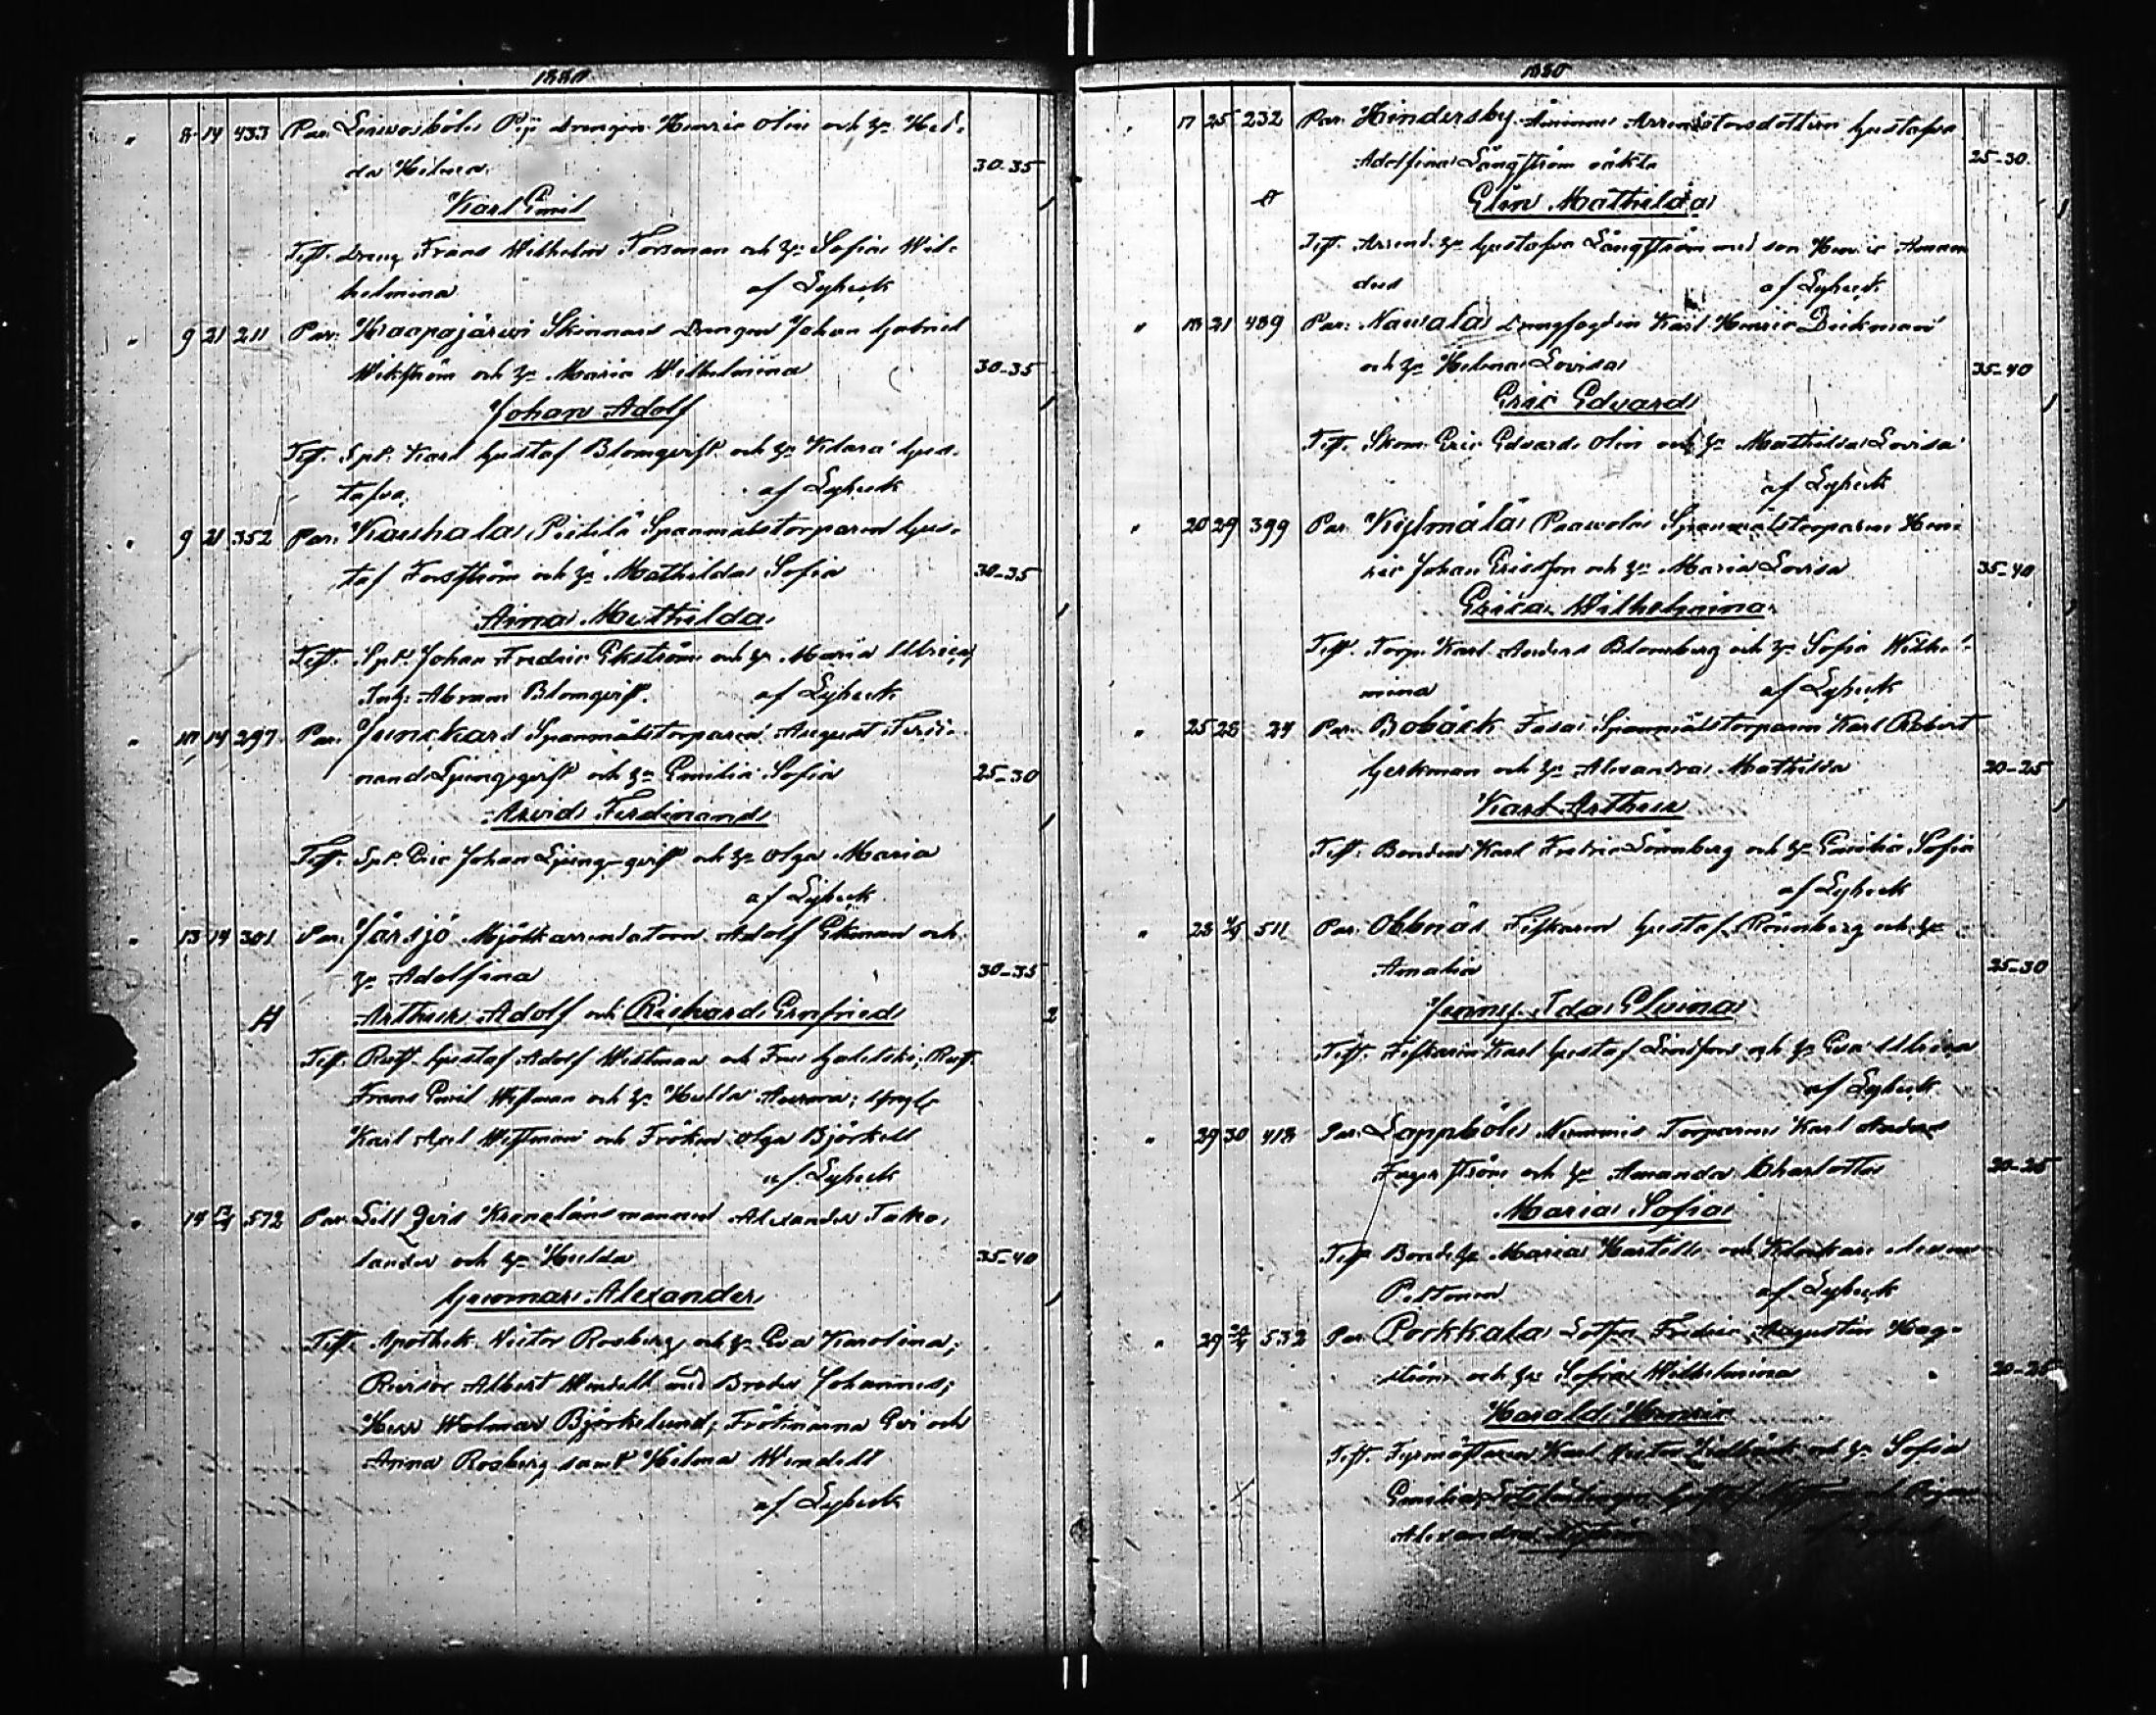 1880
" 8 14 433 Par. drengen Henric Olin och h. Hed-
da Helena 30-35
Karl Emil
Test. Dreng Frans Wilhelm Forsman och h. Sofia Wil-
helmina af Lybeck
" 9 21 211 Par. Haapajärwi Skinnars Drengen Johan Gabriel
Wikström och h. Maria Wilhelmina 30-35
Johan Adolf
Test. Spt. Karl Gustaf Blomqvist och h. Klara Gus-
tafva. af Lybeck
" 9 21 352 Par. Kauhala Pietilä Spanmålstorparen Gus-
taf Forsström och h. Mathilda Sofia 30-35
Aina Mathilda
Test. Spt. Johan Fredric Ekström och h. Maria Ulrica;
Inh. Abram Blomqvist. af Lybeck
" 10 14 297 Par. Spanmålstorparen August Ferdi-
nand Ljungqvist och h. Emilia Sofia 25-30
Arvid Ferdinand
Test. Spt. Eric Johan Ljungqvist och h. Olga Maria
af Lybeck
" 13 14 301 Par. Järsjö Mjölkarrendatorn Adolf Ekman och
h. Adolfina 30-35
Arthur Adolf och Richard Ernfried 2
Test. Rust. Gustaf Adolf Westman och Fru; Rust.
Frans Emil Westman och h. Hulda Aurora; Yngl.
Karl Axel Westman och Fröken Olga Björkell
af Lybeck
" 14 572 Par. Lill Qvis Kronolänsmannen Alexander Tako-
lander och h. Hulda 35-40
Gunnar Alexander
Test. Apothek. Victor Rosberg och h. Eva Karolina;
Revisor Albert Windell med Broder Johannes;
Herr Holmar Björkelund; Fröknarna Evi och
Anna Rosberg samt Hilma Windell
af Lybeck
1880
" 17 25 232 Par. Hindersby Arrendatorsdottren Gustafva
Adolfina Långström oäkta 25-30
Elin Mathilda
Test. Arrend. h. Gustafva Långström med son Henric Aman-
dus af Lybeck
" 18 21 489 Par. Navala Drengfogden Karl Henric Dickman
och h. Helena Lovisa 35-40
Eric Edvard
Test. Skom. Eric Edvard Olin och h. Mathilda Lovisa
af Lybeck
" 20 29 399 Par. Kylmälä Paavola Spanmålstorparen Hen-
ric Johan Ericsson och h. Maria Lovisa 35-40
Erica Wilhelmina
Test. Torp. Karl Anders Blomberg och h. Sofia Wilhel-
mina af Lybeck
" 25 28 24 Par. Bobäck Fasa Spanmålstorparen Karl Robert
Gerkman och h. Alexandra Mathilda 20-25
Karl Arthur
Test. Bonden Karl Fredric Lönnberg och h. Emilia Sofia
af Lybeck
" 28 511 Par. Obbnäs Fiskaren Gustaf Rönnberg och h.
Amalia 25-30
Jenny Ida Elvina
Test. Fiskaren Karl Gustaf och h. Eva Ulrica
af Lybeck
" 29 30 418 Par. Lappböle Nummis Torparen Karl Anders
Fagerström och h. Amanda Charlotta 20-25
Maria Sofia
Test. Bondeh. Maria och Klockare
af Lybeck
" 29 532 Par. Porkkala Lotsen Fredric Augustin Hag-
ström och h. Sofia Wilhelmina 20-25
Harald Henric
Test. Fyrmästaren Karl Victor och h. Sofia
Emilia;
Alexandra